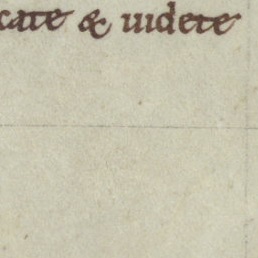 cate & uidete